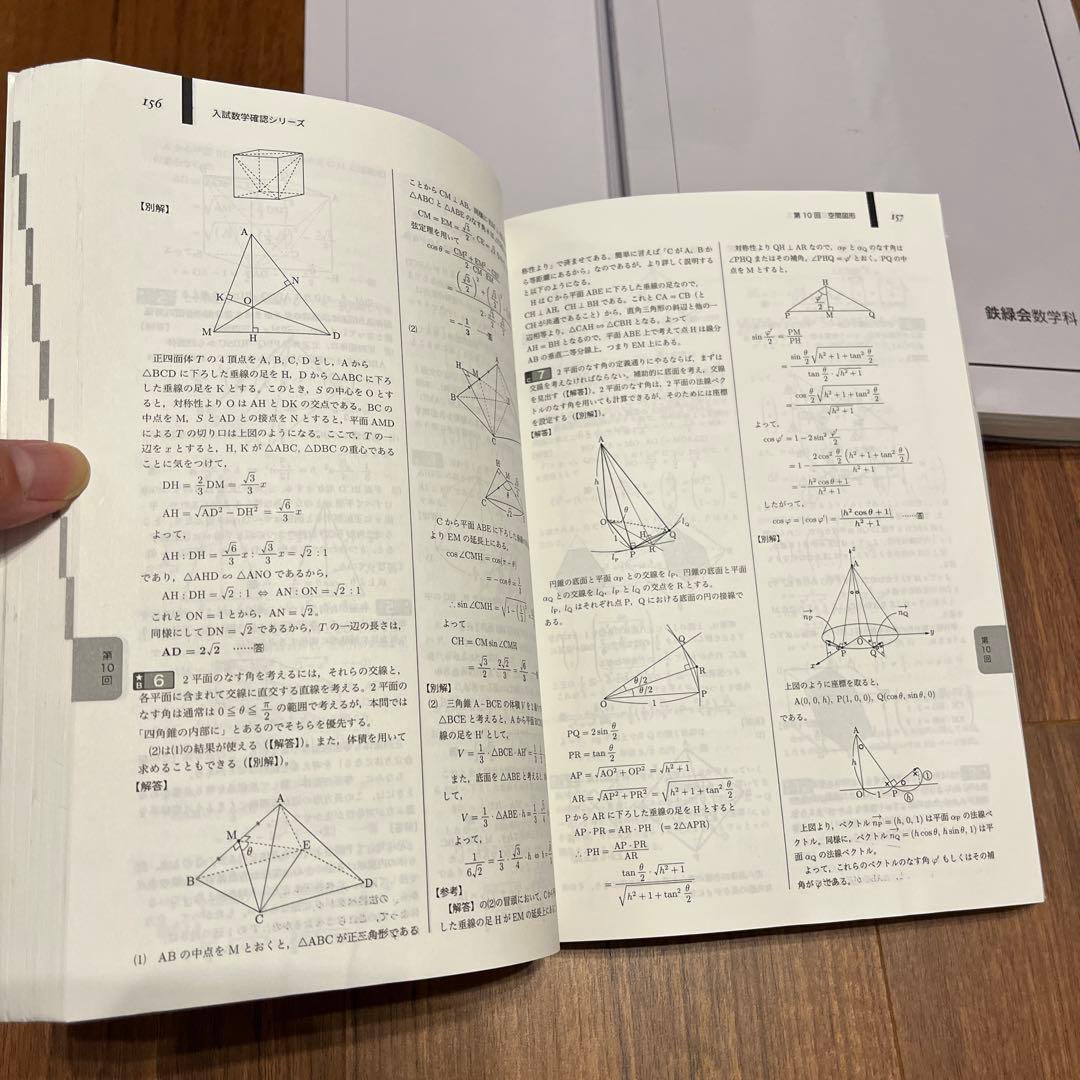 156
入試数学確認シリーズ
【別解】
A
N
K
O
M
H
D
正四面体 T の 4 頂点を A, B, C, D とし, A から
△BCD に下ろした垂線の足を H, D から △ABC に下ろ
した垂線の足を K とする。このとき, S の中心を O とす
ると, 対称性より O は AH と DK の交点である。BC の
中点を M, S と AD との接点を N とすると, 平面 AMD
による T の切り口は上図のようになる。ここで, T の一
辺を x とすると, H, K が △ABC, △DBC の重心である
ことに気をつけて,
DH = 2/3 DM = √3/3 x
AH = √(AD² − DH²) = √6/3 x
よって,
AH : DH = √6/3 x : √3/3 x = √2 : 1
であり, △AHD ∽ △ANO であるから,
AH : DH = √2 : 1 ⇔ AN : ON = √2 : 1
これと ON = 1 とから, AN = √2。
同様にして DN = √2 であるから, T の一辺の長さは,
AD = 2√2 ……答
第10回
★B 6 2 平面のなす角を考えるには, それらの交線と,
各平面に含まれて交線に直交する直線を考える。2 平面の
なす角は通常は 0 ≦ θ ≦ π/2 の範囲で考えるが, 本問では
「四角錐の内部に」とあるのでそちらを優先する。
(2)は(1)の結果が使える(【解答】)。また, 体積を用いて
求めることもできる(【別解】)。
【解答】
A
M
θ
E
B
D
C
(1) AB の中点を M とおくと, △ABC が正三角形である
ことから CM ⊥ AB。
△ABC と △ABE のなす角
CM = EM = √3/2, CE =
弦定理を用いて
cos θ =
= −1/3 ……答
(2)
C から平面 ABE に下ろした垂線
より EM の延長上にある。
cos ∠CMH = cos(π − θ)
= −cos θ = 1/3
∴ sin ∠CMH =
よって
CH = CM sin ∠CMH
= √3/2 · 2√2/3 = √6/3
【別解】
(2) 三角錐 A-BCE の体積 V を
△BCE と考えると, A から平面 BC
線の足を H′ として,
V = 1/3 · △BCE · AH′ =
また, 底面を △ABE と考えると
して,
V = 1/3 · △ABE · h =
よって,
1/6√2 = 1/3 · √3/4 · h
【参考】
【解答】の(2)の冒頭において, C から
した垂線の足 H が EM の延長上に
第 10 回 空間図形
157
称性より」で済ませてある。簡単に言えば「C が A, B か
ら等距離にあるから」なのであるが, より詳しく説明する
と以下のようになる。
H は C から平面 ABE に下ろした垂線の足なので,
CH ⊥ AH, CH ⊥ BH である。これと CA = CB (と
CH が共通であること) から, 直角三角形の斜辺と他の一
辺相等より, △CAH ≡ △CBH となる。よって
AH = BH となるので, 平面 ABE 上で考えて点 H は線分
AB の垂直二等分線上, つまり EM 上にある。
C 7 2 平面のなす角の定義通りにやるならば, まずは
交線を考えなければならない。補助的に底面を考え, 交線
を見出す(【解答】)。2 平面のなす角は, 2 平面の法線ベク
トルのなす角を用いても計算できるが, そのためには座標
を設定する(【別解】)。
【解答】
A
h
θ
O
H
Q
l_Q
1
l_P
P
R
円錐の底面と平面 α_P との交線を l_P, 円錐の底面と平面
α_Q との交線を l_Q, l_P と l_Q の交点を R とする。
l_P, l_Q はそれぞれ点 P, Q における底面の円の接線で
ある。
Q
R
θ/2
θ/2
O
1
P
PQ = 2 sin θ/2
PR = tan θ/2
AP = √(AO² + OP²) = √(h² + 1)
AR = √(AP² + PR²) = √(h² + 1 + tan² θ/2)
P から AR に下ろした垂線の足を H とすると
AP · PR = AR · PH (= 2△APR)
∴ PH = AP · PR / AR
= tan θ/2 · √(h² + 1) / √(h² + 1 + tan² θ/2)
対称性より QH ⊥ AR なので, α_P と α_Q のなす角は
∠PHQ またはその補角。∠PHQ = φ′ とおく。PQ の中
点を M とすると,
H
φ′/2
P
M
Q
sin φ′/2 = PM/PH
= sin θ/2 √(h² + 1 + tan² θ/2) / (tan θ/2 · √(h² + 1))
= cos θ/2 √(h² + 1 + tan² θ/2) / √(h² + 1)
よって,
cos φ′ = 1 − 2 sin² φ′/2
= 1 − 2 cos² θ/2 (h² + 1 + tan² θ/2) / (h² + 1)
= −(h² cos θ + 1)/(h² + 1)
したがって,
cos φ = |cos φ′| = |h² cos θ + 1|/(h² + 1) ……答
【別解】
z
A
n_P→
n_Q→
O
y
P
Q
x
第10回
上図のように座標を取ると,
A(0, 0, h), P(1, 0, 0), Q(cos θ, sin θ, 0)
である。
A
h
O
1
P
①
ⓗ
上図より, ベクトル n_P→ = (h, 0, 1) は平面 α_P の法線ベ
クトル。同様に, ベクトル n_Q→ = (h cos θ, h sin θ, 1) は平
面 α_Q の法線ベクトル。
よって, これらのベクトルのなす角 φ′ もしくはその補
角が φ である。
鉄緑会数学科